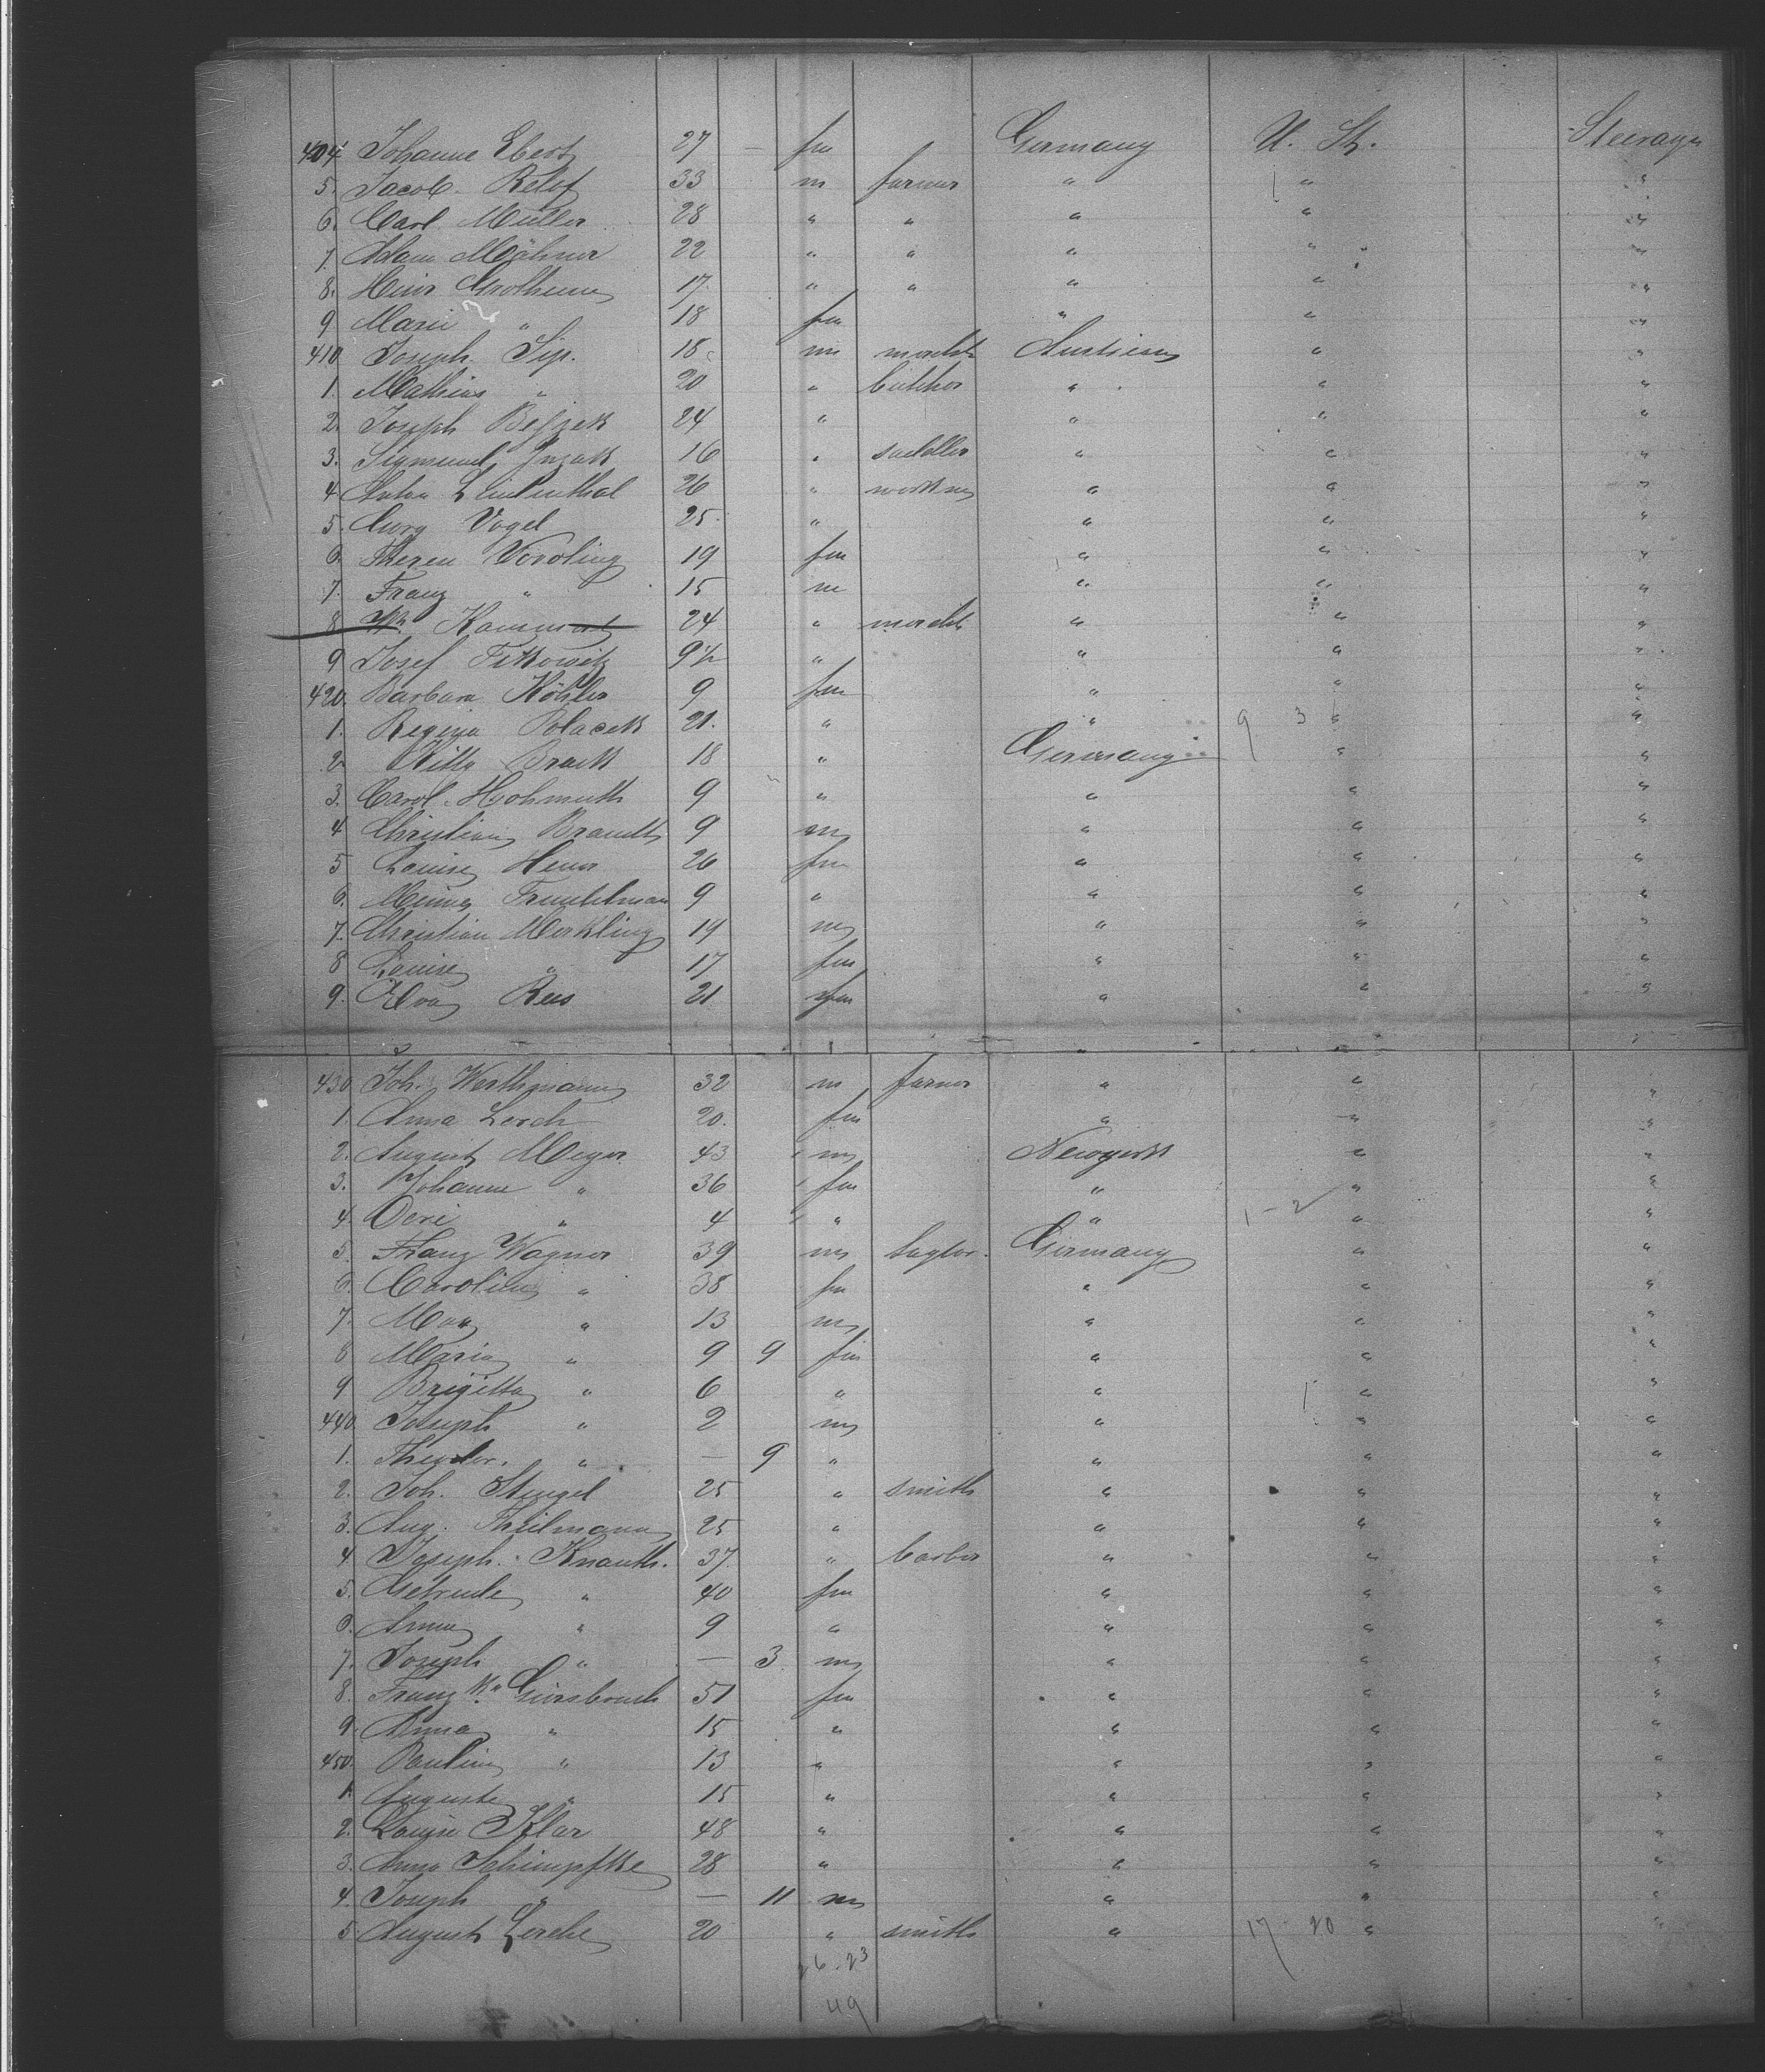 404 Johanne Ebert 27 — fm Germany U. St. Steerage
5. Jacob Relof 33 m farmer " " "
6. Carl Müller 28 " " " " "
7. Adam 22 " " " " "
8. Heinr 17 " " " " "
9 Marie " 18 fm " " "
410 Joseph Sip. 18 m Austrian " "
1. Mathias " 20 " " " "
2. Joseph 24 " " " "
3. Sigmund 16 " saddler " " "
4 Anton 26 " " " "
5. Georg Vogel 25 " " " "
6. 19 fm " " "
7. Franz " 15 m " " "
8 24 " " " "
9 Josef 9½ " " " "
420 Barbara Köhler 9 fm " " "
1. Regina Polacek 21. " " 9 3 " "
2 Brack 18 " Germany " "
3. Carol. 9 " " " "
4 Christian Brandt 9 m " " "
5 Louise 26 fm " " "
6. 9 " " " "
7. Christian Merkling 19 m " " "
8 Louise " 17 fm " " "
9. Eva Rees 21 fm " " "
430 Joh. Werthmann 32 m farmer " " "
1. Anna Lerch 20. fm " " "
2. August Meyer 43 m Newyork " "
3. Johanne " 36 fm " " "
4. " 4 " " 1-2 " "
5. Franz Wagner 39 m taylor. Germany " "
6. Caroline " 38 fm " " "
7. Max " 13 m " " "
8 Maria " 9 9 fm " " "
9 Brigitta " 6 " " " "
440 Joseph " 2 m " " "
1. Theodor. " — 9 " " " "
2. Joh. Stengel 25 " smith " " "
3. Aug. Theilmann 25 " " " "
4 Joseph Knauth. 37. " barber " " "
5. Getrude " 40 fm " " "
6. Anna " 9 " " " "
7. Joseph " — 3 m " " "
8. Franz 51 fm " " "
9. Anna " 15 " " " "
450. Pauline " 13 " " " "
1 Auguste " 15 " " " "
2. Louise Klar 48 " " " "
3. Anna Schimpfke 28 " " " "
4. Joseph " — 11 m " " "
5. August Lerche 20 " smith " 17-20 " "
26-23
49